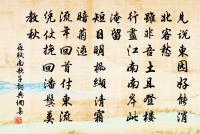 見說東園好能消
北客愁
雖非吾土且登樓
行盡江南南岸此
淹留
短日明楓纈清霜
暗菊毬
流年回首付東流
凭仗挽回潘鬢莫
教秋
蘇軾南歌子詞典網